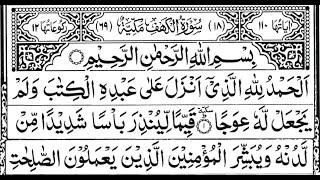 اٰيَاتُهَا ١١٠ (١٨) سُوْرَةُ الْكَهْفِ مَكِّيَّةٌ (٦٩) رُكُوْعَاتُهَا ١٢
بِسْمِ اللّٰهِ الرَّحْمٰنِ الرَّحِيْمِ
اَلْحَمْدُ لِلّٰهِ الَّذِيْٓ اَنْزَلَ عَلٰى عَبْدِهِ الْكِتٰبَ وَلَمْ
يَجْعَلْ لَّهٗ عِوَجًا ۱ قَيِّمًا لِّيُنْذِرَ بَاْسًا شَدِيْدًا مِّنْ
لَّدُنْهُ وَيُبَشِّرَ الْمُؤْمِنِيْنَ الَّذِيْنَ يَعْمَلُوْنَ الصّٰلِحٰتِ